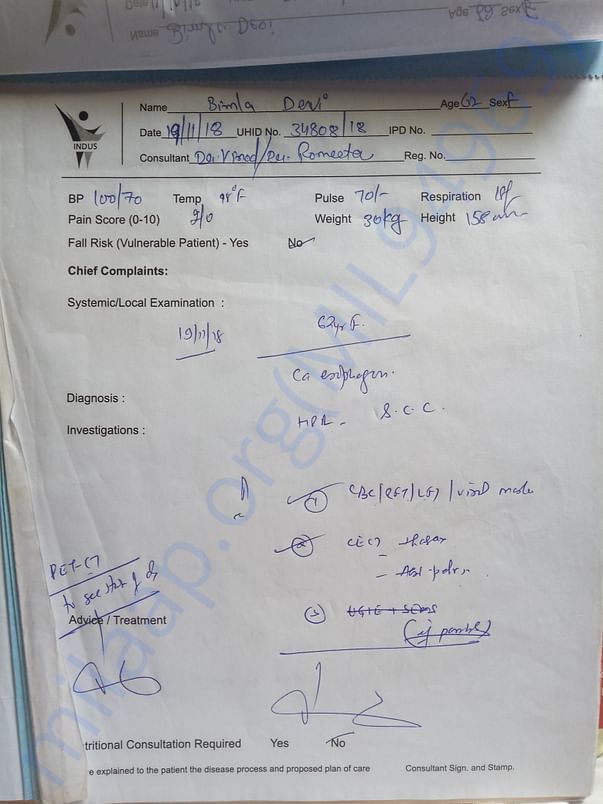 Name Bimla Devi Age 62 Sex F
INDUS
Date 19/11/18 UHID No. 34808/18 IPD No.
Consultant Dr. Vinod/Dr. Romeeta Reg. No.
BP 100/70 Temp 98°F Pulse 70/- Respiration 18/
Pain Score (0-10) 2/0 Weight 30kg Height 158cm
Fall Risk (Vulnerable Patient) - Yes No
Chief Complaints:
Systemic/Local Examination :
19/11/18 62yr F.
Ca esophagus.
Diagnosis :
HPR - S.C.C.
Investigations :
① CBC/RFT/LFT/viral marker
② CECT thorax
- Abd-pelvis
PET-CT
to see
③ UGIE + SEMS
(if possible)
Advice / Treatment
tritional Consultation Required Yes No
e explained to the patient the disease process and proposed plan of care Consultant Sign. and Stamp.
milaap.org(MIL949691)